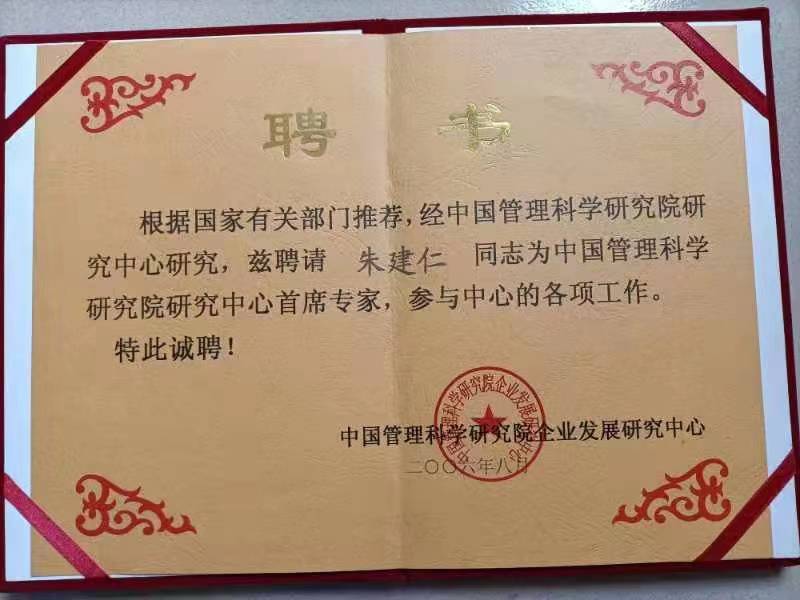 聘 书
根据国家有关部门推荐，经中国管理科学研究院研
究中心研究，兹聘请 朱建仁 同志为中国管理科学
研究院研究中心首席专家，参与中心的各项工作。
特此诚聘！
中国管理科学研究院企业发展研究中心
中国管理科学研究院企业发展研究中心
二〇〇六年八月